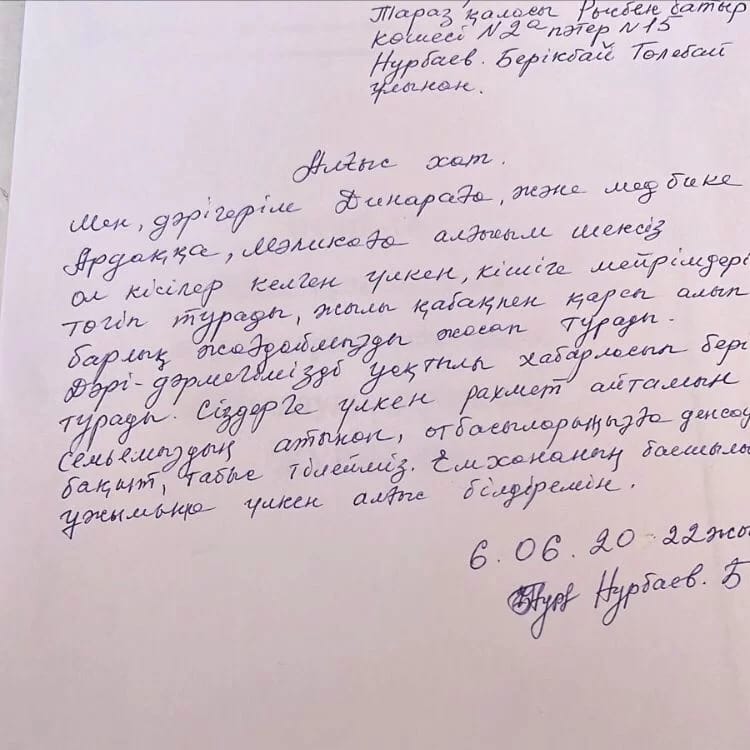 Тараз қаласы Рысбек батыр
көшесі N2а пәтер N15
Нурбаев. Берікбай Төлебай
ұлынан.
Алғыс хат.
Мен, дәрігеріме Динараға, және мед бике
Ардаққа, Мәликаға алғысым шексіз
ол кісілер келген үлкен, кішіге мейрімдері
төгіп тұрады, жылы қабақпен қарсы алып
барлық жағдаймызды жасап турады.
Дәрі-дәрмегімізді уақтылы хабарласып бері
турады. Сіздерге үлкен рахмет айтамын
семьемыздың атынан, отбасыларыңызға денсау
бақыт, табыс тілейміз. Емхананың басшылы
ұжымына үлкен алғыс білдіремін.
6.06.20-22жы
Нурбаев. Б